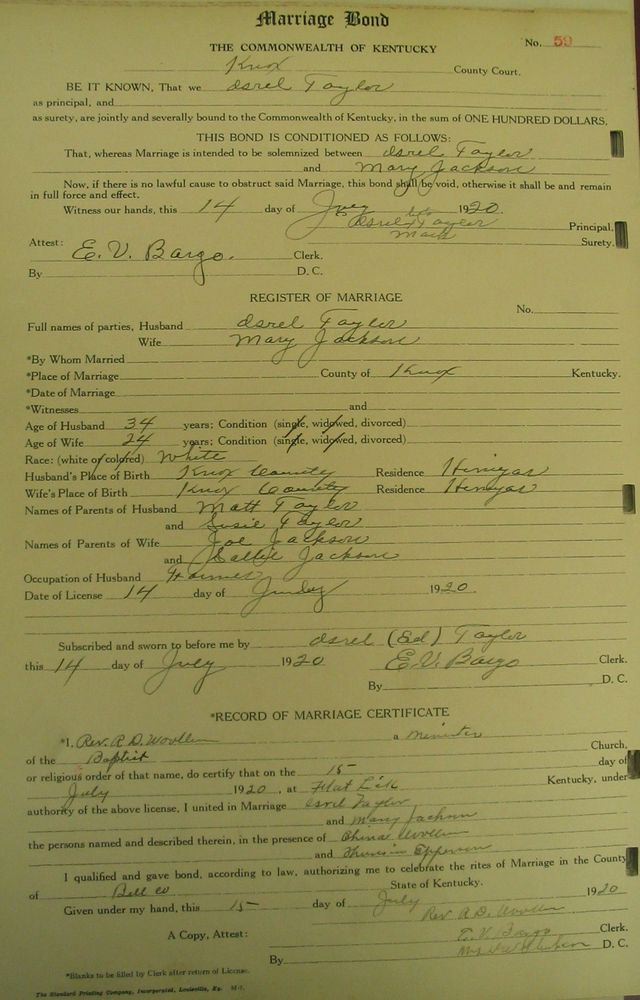 Marriage Bond
THE COMMONWEALTH OF KENTUCKY No. 59
Knox County Court.
BE IT KNOWN, That we Osrel Taylor
as principal, and
as surety, are jointly and severally bound to the Commonwealth of Kentucky, in the sum of ONE HUNDRED DOLLARS.
THIS BOND IS CONDITIONED AS FOLLOWS:
That, whereas Marriage is intended to be solemnized between Osrel Taylor
and Mary Jackson
Now, if there is no lawful cause to obstruct said Marriage, this bond shall be void, otherwise it shall be and remain
in full force and effect.
Witness our hands, this 14 day of July 1920.
Osrel Taylor Principal.
mark Surety.
Attest: E. V. Bargo. Clerk.
By D. C.
REGISTER OF MARRIAGE
No.
Full names of parties, Husband Osrel Taylor
Wife Mary Jackson
*By Whom Married
*Place of Marriage County of Knox Kentucky.
*Date of Marriage
*Witnesses and
Age of Husband 34 years; Condition (single, widowed, divorced)
Age of Wife 24 years; Condition (single, widowed, divorced)
Race: (white or colored) White
Husband's Place of Birth Knox County Residence
Wife's Place of Birth Knox County Residence
Names of Parents of Husband Matt Taylor
and Susie Taylor
Names of Parents of Wife Joe Jackson
and Sallie Jackson
Occupation of Husband Farmer
Date of License 14 day of 1920.
Subscribed and sworn to before me by Osrel (Ed) Taylor
this 14 day of July 1920 E. V. Bargo Clerk.
By D. C.
*RECORD OF MARRIAGE CERTIFICATE
*I, Rev. A. D. Woollum a Minister
of the Baptist Church,
or religious order of that name, do certify that on the 15 day of
July 1920, at Flat Lick Kentucky, under
authority of the above license, I united in Marriage Osrel Taylor
and Mary Jackson
the persons named and described therein, in the presence of China Woollum
and Epperson
I qualified and gave bond, according to law, authorizing me to celebrate the rites of Marriage in the County
of Bell co State of Kentucky.
Given under my hand, this 15 day of July 1920
Rev. A. D. Woollum
A Copy, Attest: E. V. Bargo Clerk.
By D. C.
*Blanks to be filled by Clerk after return of License.
The Standard Printing Company, Incorporated, Louisville, Ky.